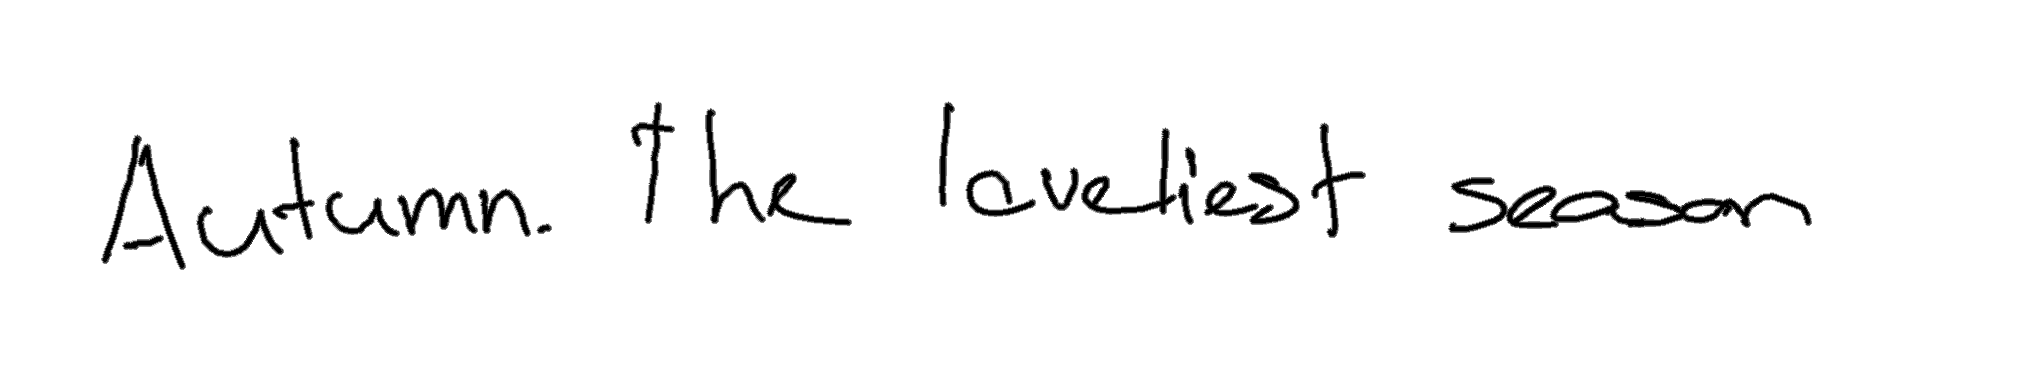 Autumn. The loveliest season